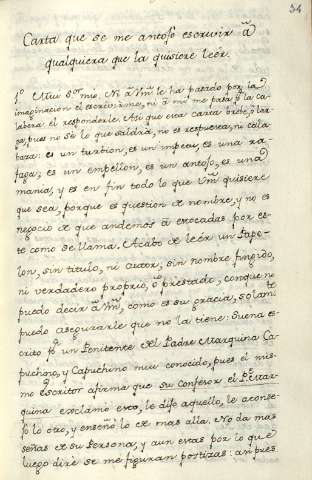 34
Carta que se me antojo escrivir â
qualquiera que la quisiere leér.
Muy Sor mio. Ni â Vm le ha pasado por la
imaginacion el escrivirme, ni â mi me pasa por la ca-
labera el responderle. Asi que esta carta breve, ô lar-
ga, pues no sè lo que saldrá, no es respuesta, ni cala-
baza: es un turbion, es un impetu, es una ra-
faga, es un empellon, es un antojo, es una
mania, y es en fin todo lo que Vm quisiere
que sea, porque es question de nombre, y no es
negocio de que andemos â estocadas por es-
te como se llama. Acabo de leér un Pape-
lon, sin titulo, ni autor; sin nombre fingido,
ni verdadero proprio, ô prestado, conque no
puedo decir â Vm, como es su gracia, solamte
puedo asegurarle que no la tiene: Suena es-
crito pr un Penitente del Padre Marquina Ca-
puchino, y Capuchino muy conocido, pues el mis-
mo Escritor afirma que su Confesor el Pe Mar-
quina exclamó esto, le dijo aquello, le aconse-
jó lo otro, y enseñó lo de mas allá. No da mas
señas de su Persona, y aun estas por lo que
luego dirè se me figuran postizas: asi pues